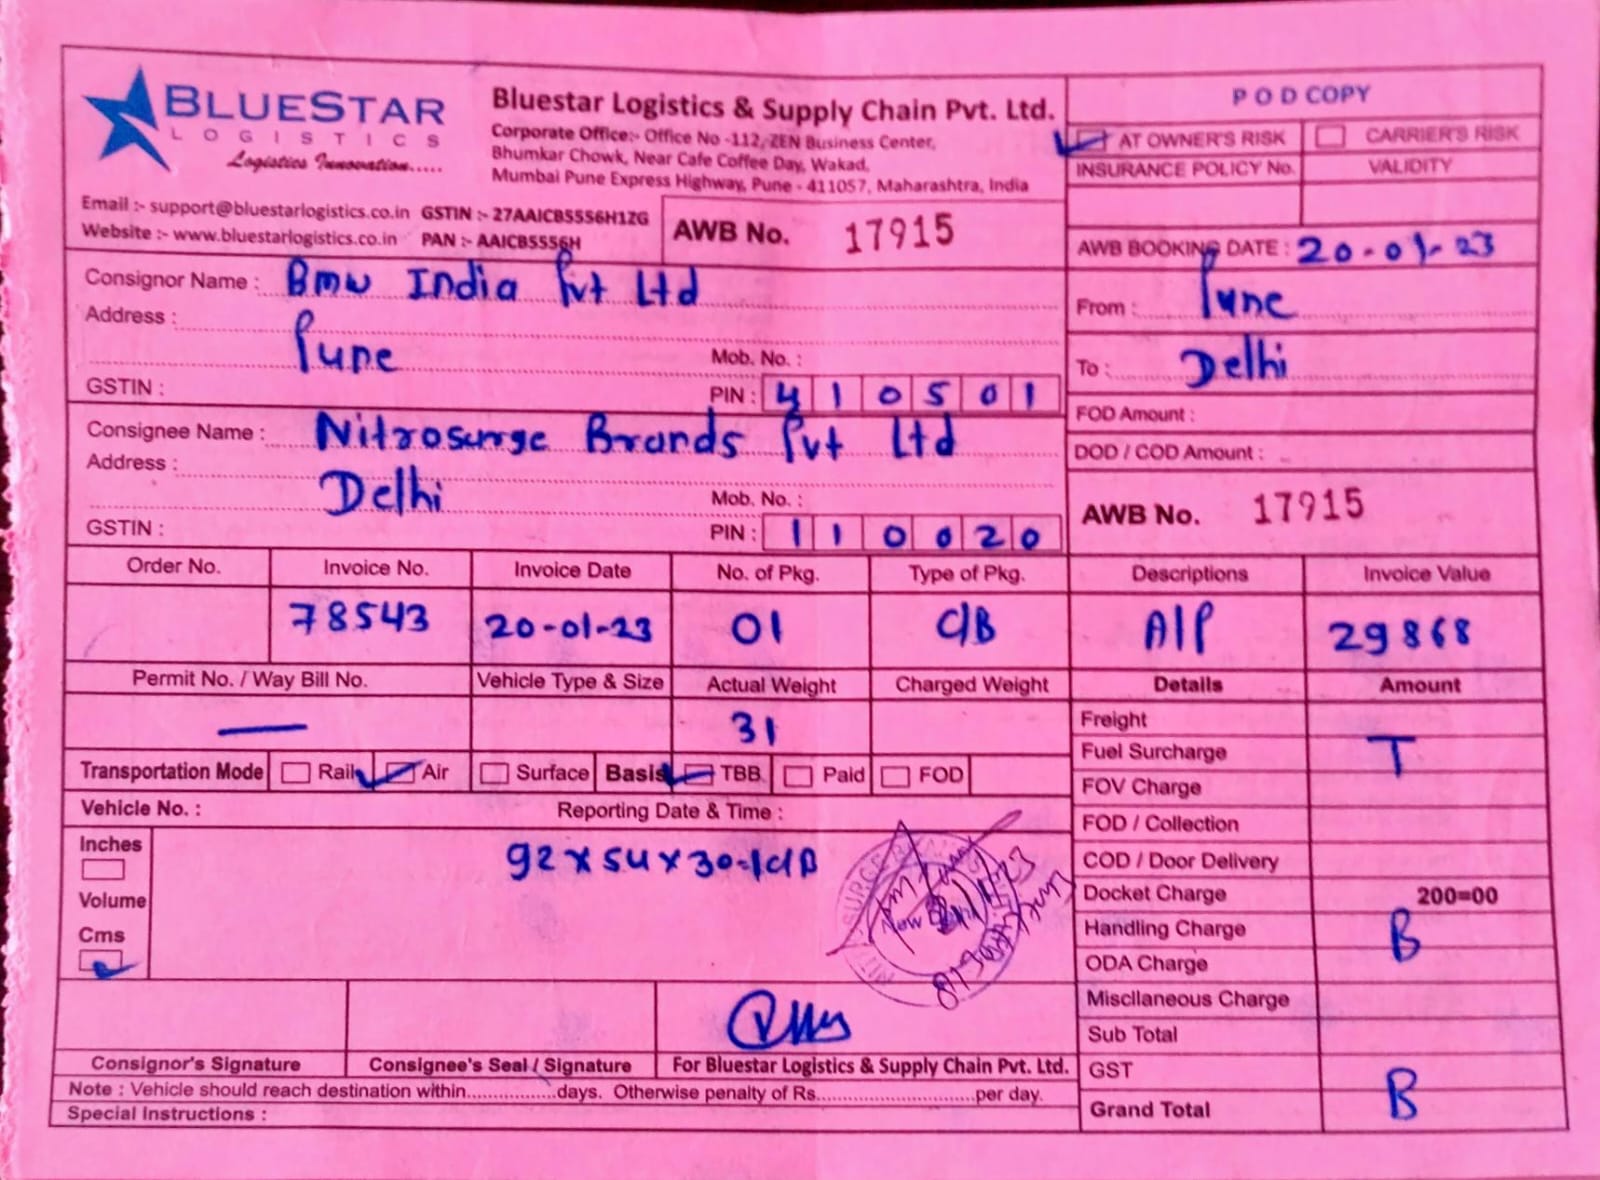 BLUESTAR
LOGISTICS
Logistics Innovation.....
Bluestar Logistics & Supply Chain Pvt. Ltd.
Corporate Office:- Office No -112, ZEN Business Center,
Bhumkar Chowk, Near Cafe Coffee Day, Wakad,
Mumbai Pune Express Highway, Pune - 411057, Maharashtra, India
Email :- support@bluestarlogistics.co.in GSTIN :- 27AAICB5556H1ZG
Website :- www.bluestarlogistics.co.in PAN :- AAICB5556H
AWB No. 17915
POD COPY
AT OWNER'S RISK CARRIER'S RISK
INSURANCE POLICY No. VALIDITY
AWB BOOKING DATE : 20-01-23
Consignor Name : Bmw India Pvt Ltd
Address : Pune
Mob. No. :
GSTIN : PIN : 410501
From : Pune
To : Delhi
FOD Amount :
DOD / COD Amount :
Consignee Name : Nitrosurge Brands Pvt Ltd
Address : Delhi
Mob. No. :
GSTIN : PIN : 110020
AWB No. 17915
Order No. Invoice No. Invoice Date No. of Pkg. Type of Pkg. Descriptions Invoice Value
78543 20-01-23 01 C/B A/P 29868
Permit No. / Way Bill No. Vehicle Type & Size Actual Weight Charged Weight Details Amount
— 31
Transportation Mode Rail Air Surface Basis TBB Paid FOD
Vehicle No. : Reporting Date & Time :
Inches
Volume
Cms
92 x 54 x 30-1C/B
Freight
Fuel Surcharge T
FOV Charge
FOD / Collection
COD / Door Delivery
Docket Charge 200=00
Handling Charge B
ODA Charge
Miscllaneous Charge
Sub Total
GST
Grand Total B
Consignor's Signature Consignee's Seal / Signature For Bluestar Logistics & Supply Chain Pvt. Ltd.
Note : Vehicle should reach destination within.................days. Otherwise penalty of Rs.............................per day.
Special Instructions :